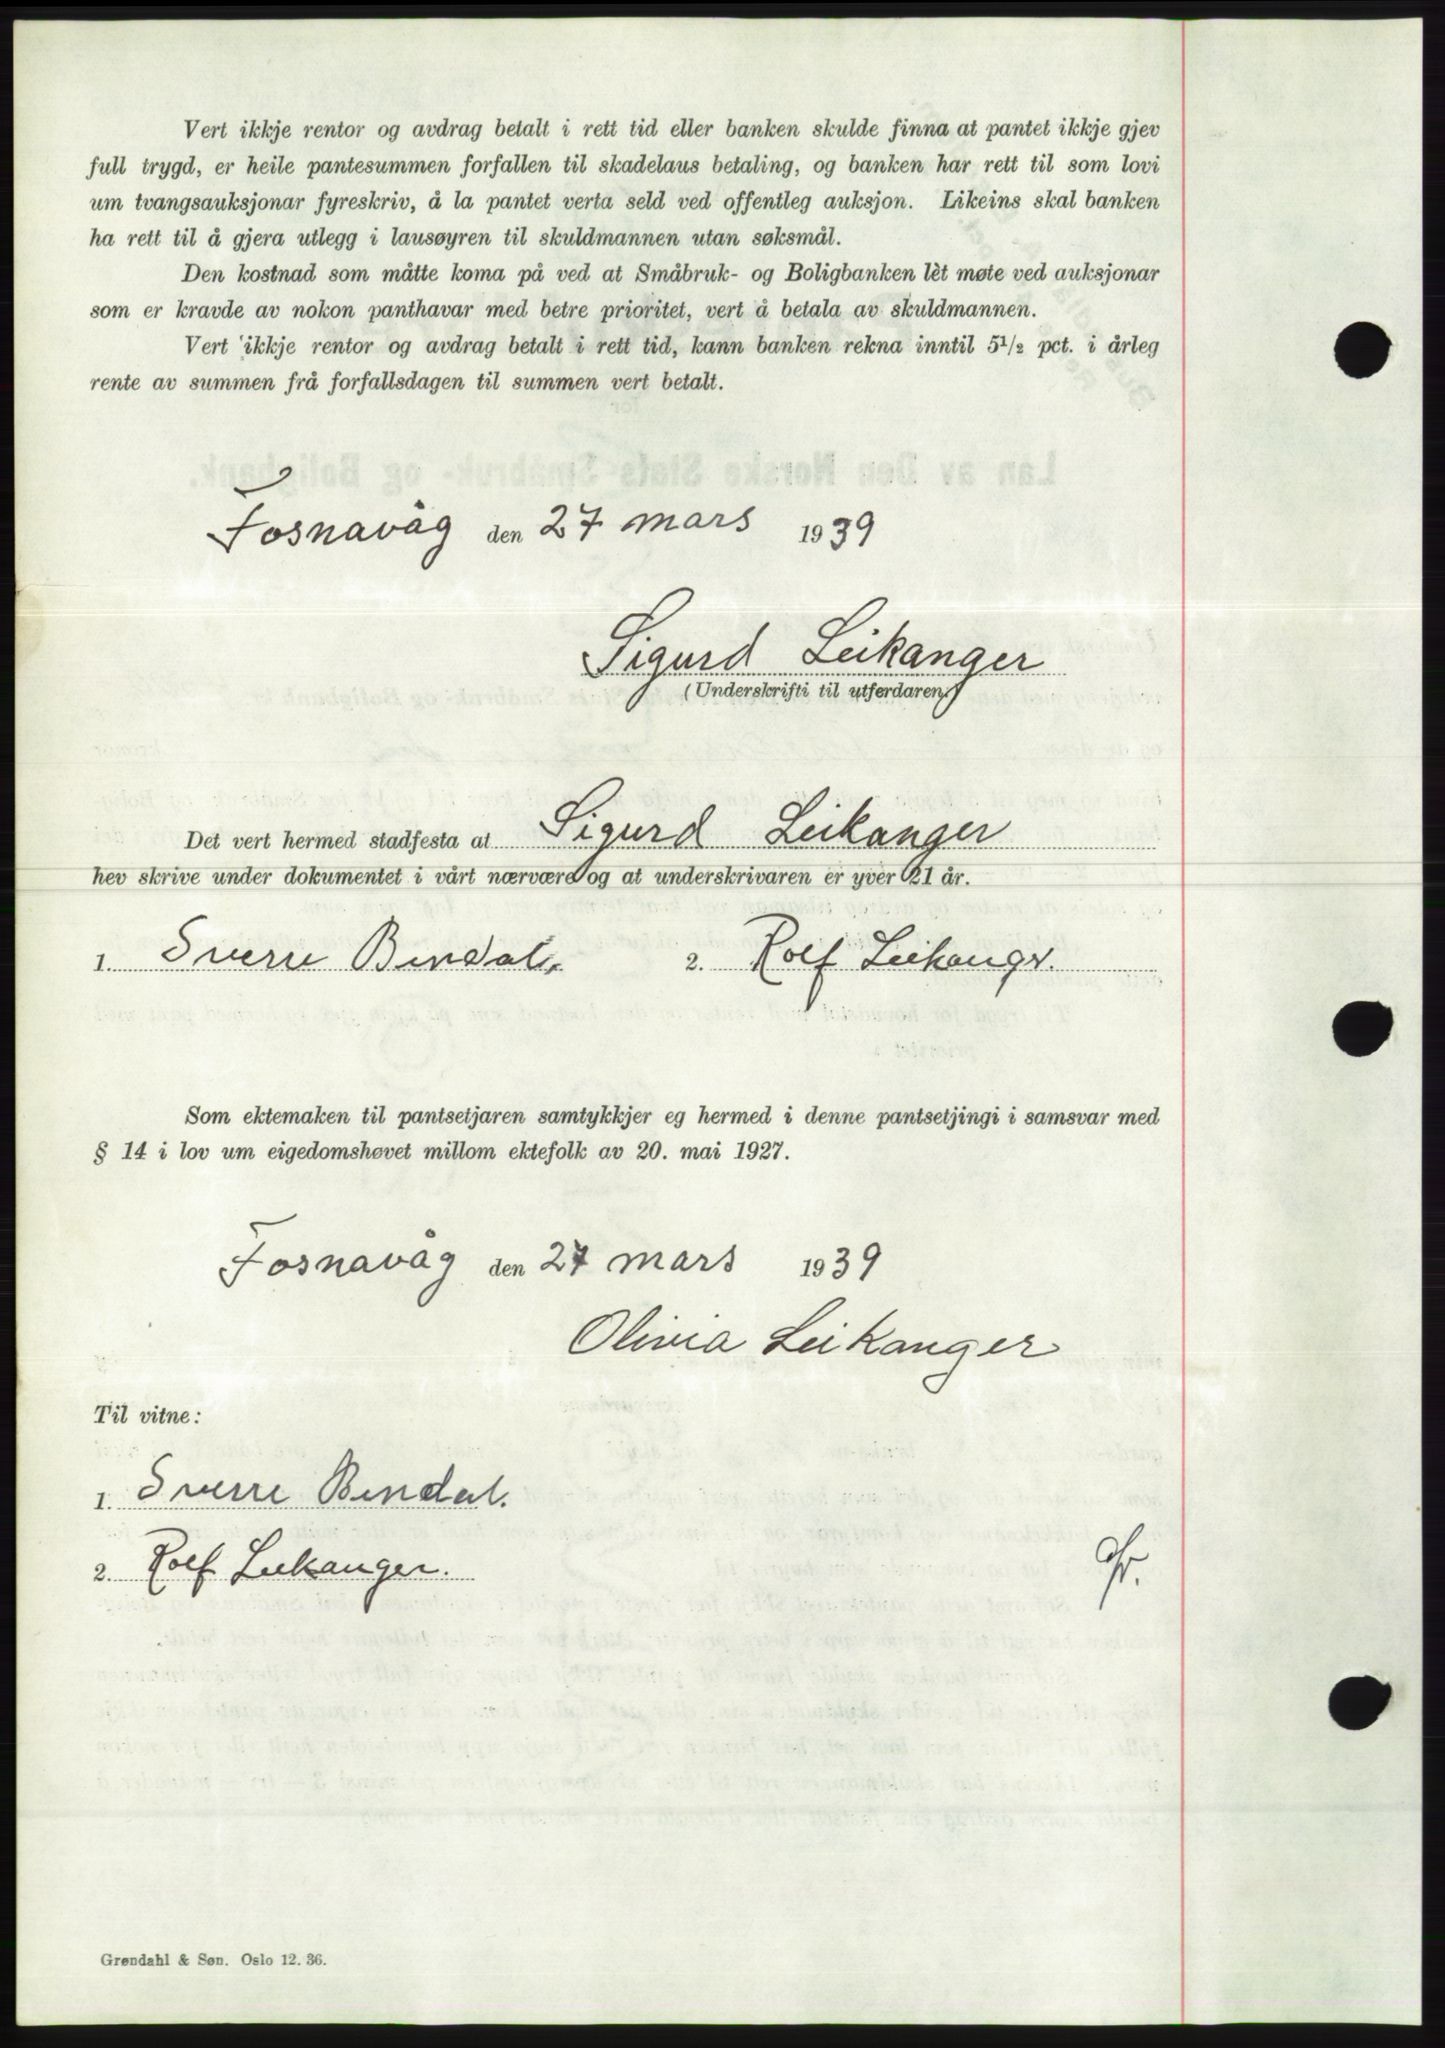 Vert ikkje rentor og avdrag betalt i rett tid eller banken skulde finna at pantet ikkje gjev
full trygd, er heile pantesummen forfallen til skadelaus betaling, og banken har rett til som lovi
um tvangsauksjonar fyreskriv, å la pantet verta seld ved offentleg auksjon. Likeins skal banken
ha rett til å gjera utlegg i lausøyren til skuldmannen utan søksmål.
Den kostnad som måtte koma på ved at Småbruk- og Boligbanken lèt møte ved auksjonar
som er kravde av nokon panthavar med betre prioritet, vert å betala av skuldmannen.
Vert ikkje rentor og avdrag betalt i rett tid, kann banken rekna inntil 5 1/2 pct. i årleg
rente av summen frå forfallsdagen til summen vert betalt.
Fosnavåg den 27 mars 1939
Sigurd Leikanger
(Underskrifti til utferdaren)
Det vert hermed stadfesta at Sigurd Leikanger
hev skrive under dokumentet i vårt nærvære og at underskrivaren er yver 21 år.
1. Sverre Bendal. 2. Rolf Leikanger.
Som ektemaken til pantsetjaren samtykkjer eg hermed i denne pantsetjingi i samsvar med
§ 14 i lov um eigedomshøvet millom ektefolk av 20. mai 1927.
Fosnavåg den 27 mars 1939
Olivia Leikanger
Til vitne:
1. Sverre Bendal.
2. Rolf Leikanger.
Grøndahl & Søn. Oslo 12. 36.